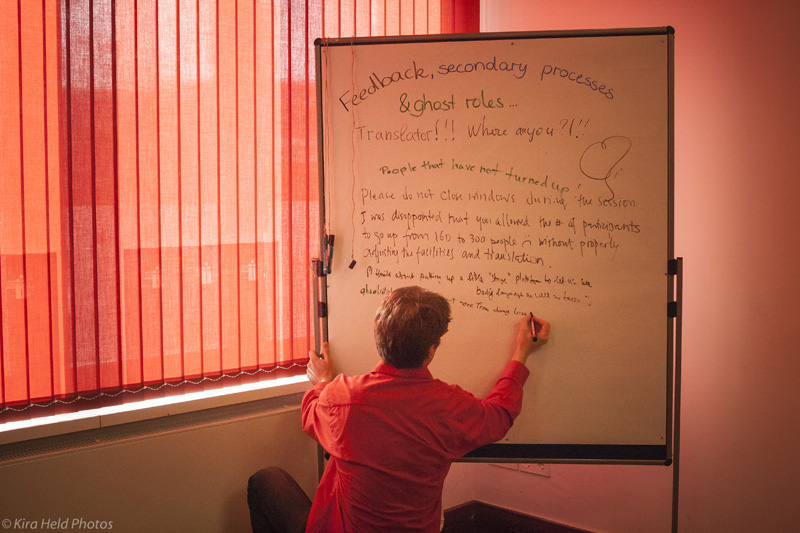 Feedback, secondary processes
& ghost roles ...
Translator!!! Where are you?!!!
People that have not turned up!
Please do not close windows during the session.
I was disappointed that you allowed the # of participants
to go up from 160 to 300 people in without properly
adjusting the facilities and translation.
Think about putting up a little "stage" platform to let us see
Body language as well as faces
© Kira Held Photos